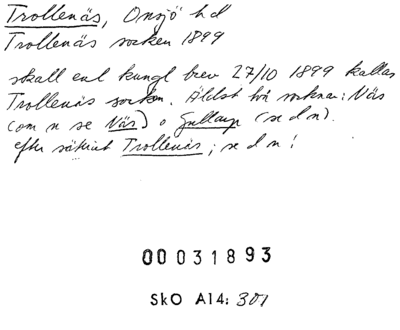 Trollenäs, Onsjö hd
Trollenäs socken 1899
skall enl kungl brev 27/10 1899 kallas
Trollenäs socken. Äldst två socknar: Näs
(om n se Näs) o Gullarp (se d n).
efter säkert Trollenäs; se d n!
00031893
SkO A14: 301